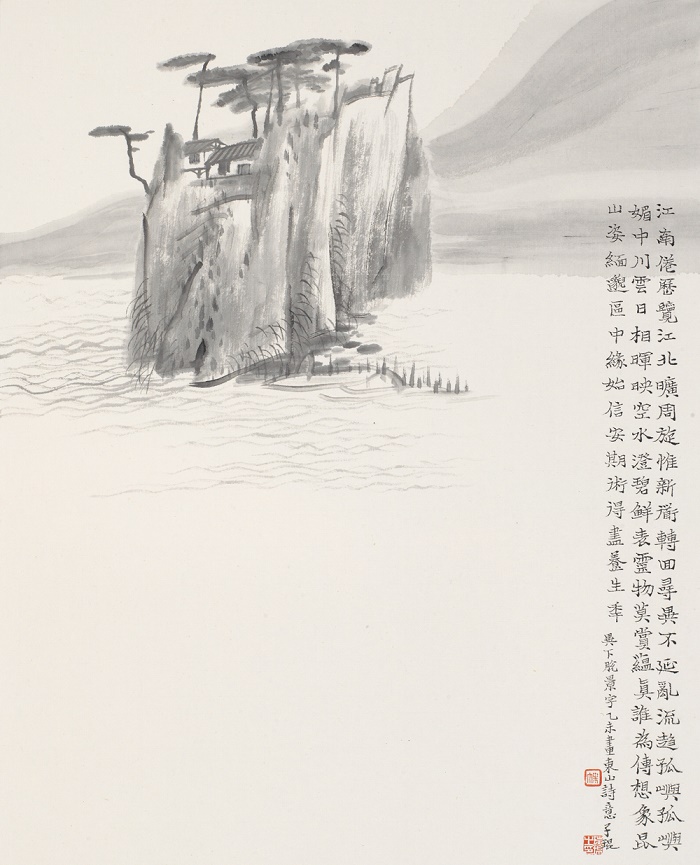 江南倦歷覽江北曠周旋惟新衜轉回尋異不延亂流趍孤嶼孤嶼
媚中川雲日相暉映空水澄碧鮮表靈物莫賞蘊真誰為傳想象昆
山姿緬邈區中緣始信安期術得盡養生秊
吳下景宇乙未畫東山詩意子琨